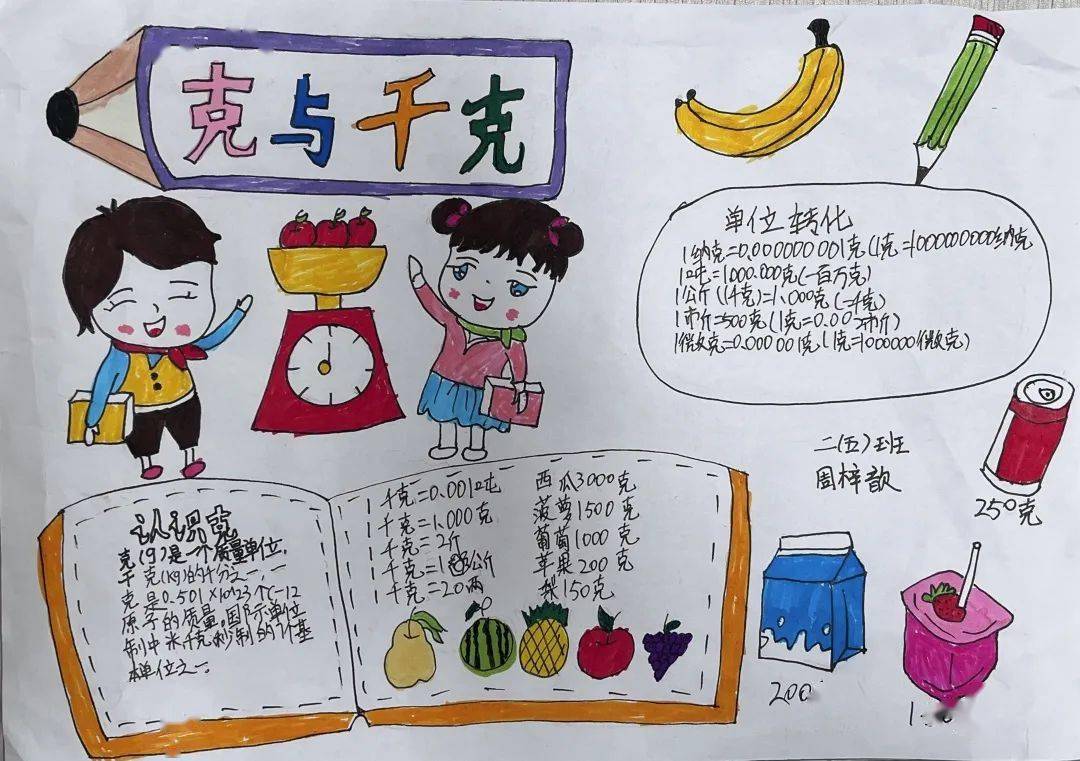 克与千克
单位转化
1纳克=0.000000001克(1克=1000000000纳克
1吨=1000.000克(一百万克)
1公斤(1千克)=1.000克(=千克)
1市斤=500克(1克=0.002市斤)
1微克=0.000001克(1克=1000000微克)
二(五)班
周梓歆
250克
认识克
克(g)是一个质量单位,
千克(kg)的千分之一,一
克是0.501×10^23个C-12
原子的质量。国际单位
制中米千克秒制的7个基
本单位之一
1千克=0.001吨
1千克=1.000克
1千克=2斤
1千克=1公斤
1千克=20两
西瓜3000克
菠萝1500克
葡萄1000克
苹果200克
梨150克
200